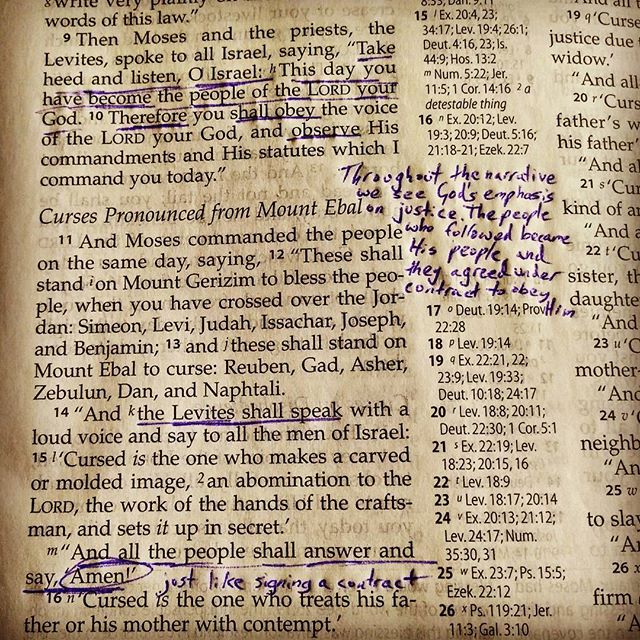 write very plainly on
words of this law."
9 Then Moses and the priests, the
Levites, spoke to all Israel, saying, "Take
heed and listen, O Israel: h This day you
have become the people of the LORD your
God. 10 Therefore you shall obey the voice
of the LORD your God, and observe His
commandments and His statutes which I
command you today."
Curses Pronounced from Mount Ebal
11 And Moses commanded the people
on the same day, saying, 12 "These shall
stand i on Mount Gerizim to bless the peo-
ple, when you have crossed over the Jor-
dan: Simeon, Levi, Judah, Issachar, Joseph,
and Benjamin; 13 and j these shall stand on
Mount Ebal to curse: Reuben, Gad, Asher,
Zebulun, Dan, and Naphtali.
14 "And k the Levites shall speak with a
loud voice and say to all the men of Israel:
15 l 'Cursed is the one who makes a carved
or molded image, 2 an abomination to the
LORD, the work of the hands of the crafts-
man, and sets it up in secret.'
m "And all the people shall answer and
say, 'Amen!'
just like signing a contract
16 n 'Cursed is the one who treats his fa-
ther or his mother with contempt.'
8:33; Dan. 9:11
15 l Ex. 20:4, 23;
34:17; Lev. 19:4; 26:1;
Deut. 4:16, 23; Is.
44:9; Hos. 13:2
m Num. 5:22; Jer.
11:5; 1 Cor. 14:16 2 a
detestable thing
16 n Ex. 20:12; Lev.
19:3; 20:9; Deut. 5:16;
21:18-21; Ezek. 22:7
Throughout the narrative
we see God's emphasis
on justice. The people
who followed became
His people and
they agreed under
contract to obey
Him
17 o Deut. 19:14; Prov.
22:28
18 p Lev. 19:14
19 q Ex. 22:21, 22;
23:9; Lev. 19:33;
Deut. 10:18; 24:17
20 r Lev. 18:8; 20:11;
Deut. 22:30; 1 Cor. 5:1
21 s Ex. 22:19; Lev.
18:23; 20:15, 16
22 t Lev. 18:9
23 u Lev. 18:17; 20:14
24 v Ex. 20:13; 21:12;
Lev. 24:17; Num.
35:30, 31
25 w Ex. 23:7; Ps. 15:5;
Ezek. 22:12
26 x Ps. 119:21; Jer.
11:3; Gal. 3:10
19 q 'Curse
justice due
widow.'
"And all
20 r 'Curse
father's w
his father'
"And al
21 s 'Curs
kind of an
"And a
22 t 'Cu
sister, th
daughte
"And
23 u '
mother-
"And
24 v '
neighb
"An
25 w
to slay
"An
26 x
firm
"